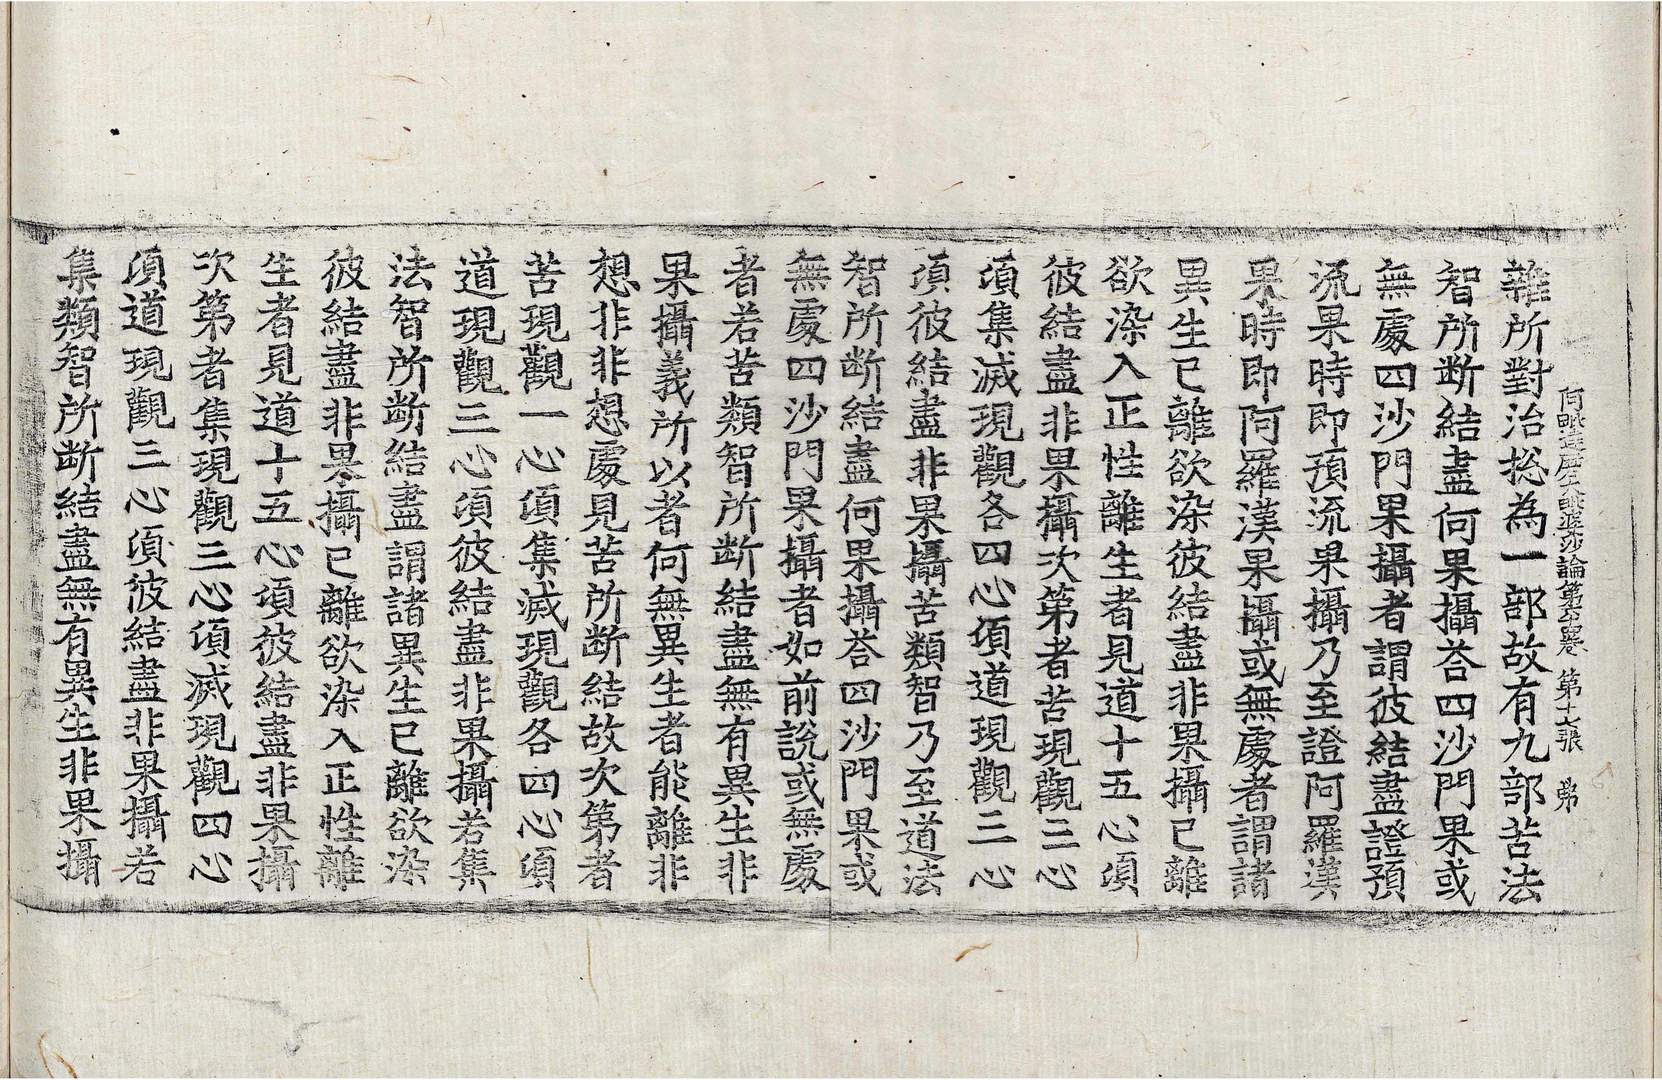 阿毗達磨大毗婆沙論第卷 第十七張
雜所對治揔為一部故有九部苦法
智所断結盡何果攝荅四沙門果或
無處四沙門果攝者謂彼結盡證預
流果時即預流果攝乃至證阿羅漢
果時即阿羅漢果攝或無處者謂諸
異生已離欲染彼結盡非果攝已離
欲染入正性離生者見道十五心頃
彼結盡非果攝次第者苦現觀三心
頃集滅現觀各四心頃道現觀三心
頃彼結盡非果攝苦類智乃至道法
智所断結盡何果攝荅四沙門果或
無處四沙門果攝者如前說或無處
者若苦類智所断結盡無有異生非
果攝義所以者何無異生者能離非
想非非想處見苦所断結故次第者
苦現觀一心頃集滅現觀各四心頃
道現觀三心頃彼結盡非果攝若集
法智所断結盡謂諸異生已離欲染
彼結盡非果攝已離欲染入正性離
生者見道十五心頃彼結盡非果攝
次第者集現觀三心頃滅現觀四心
頃道現觀三心頃彼結盡非果攝若
集類智所断結盡無有異生非果攝